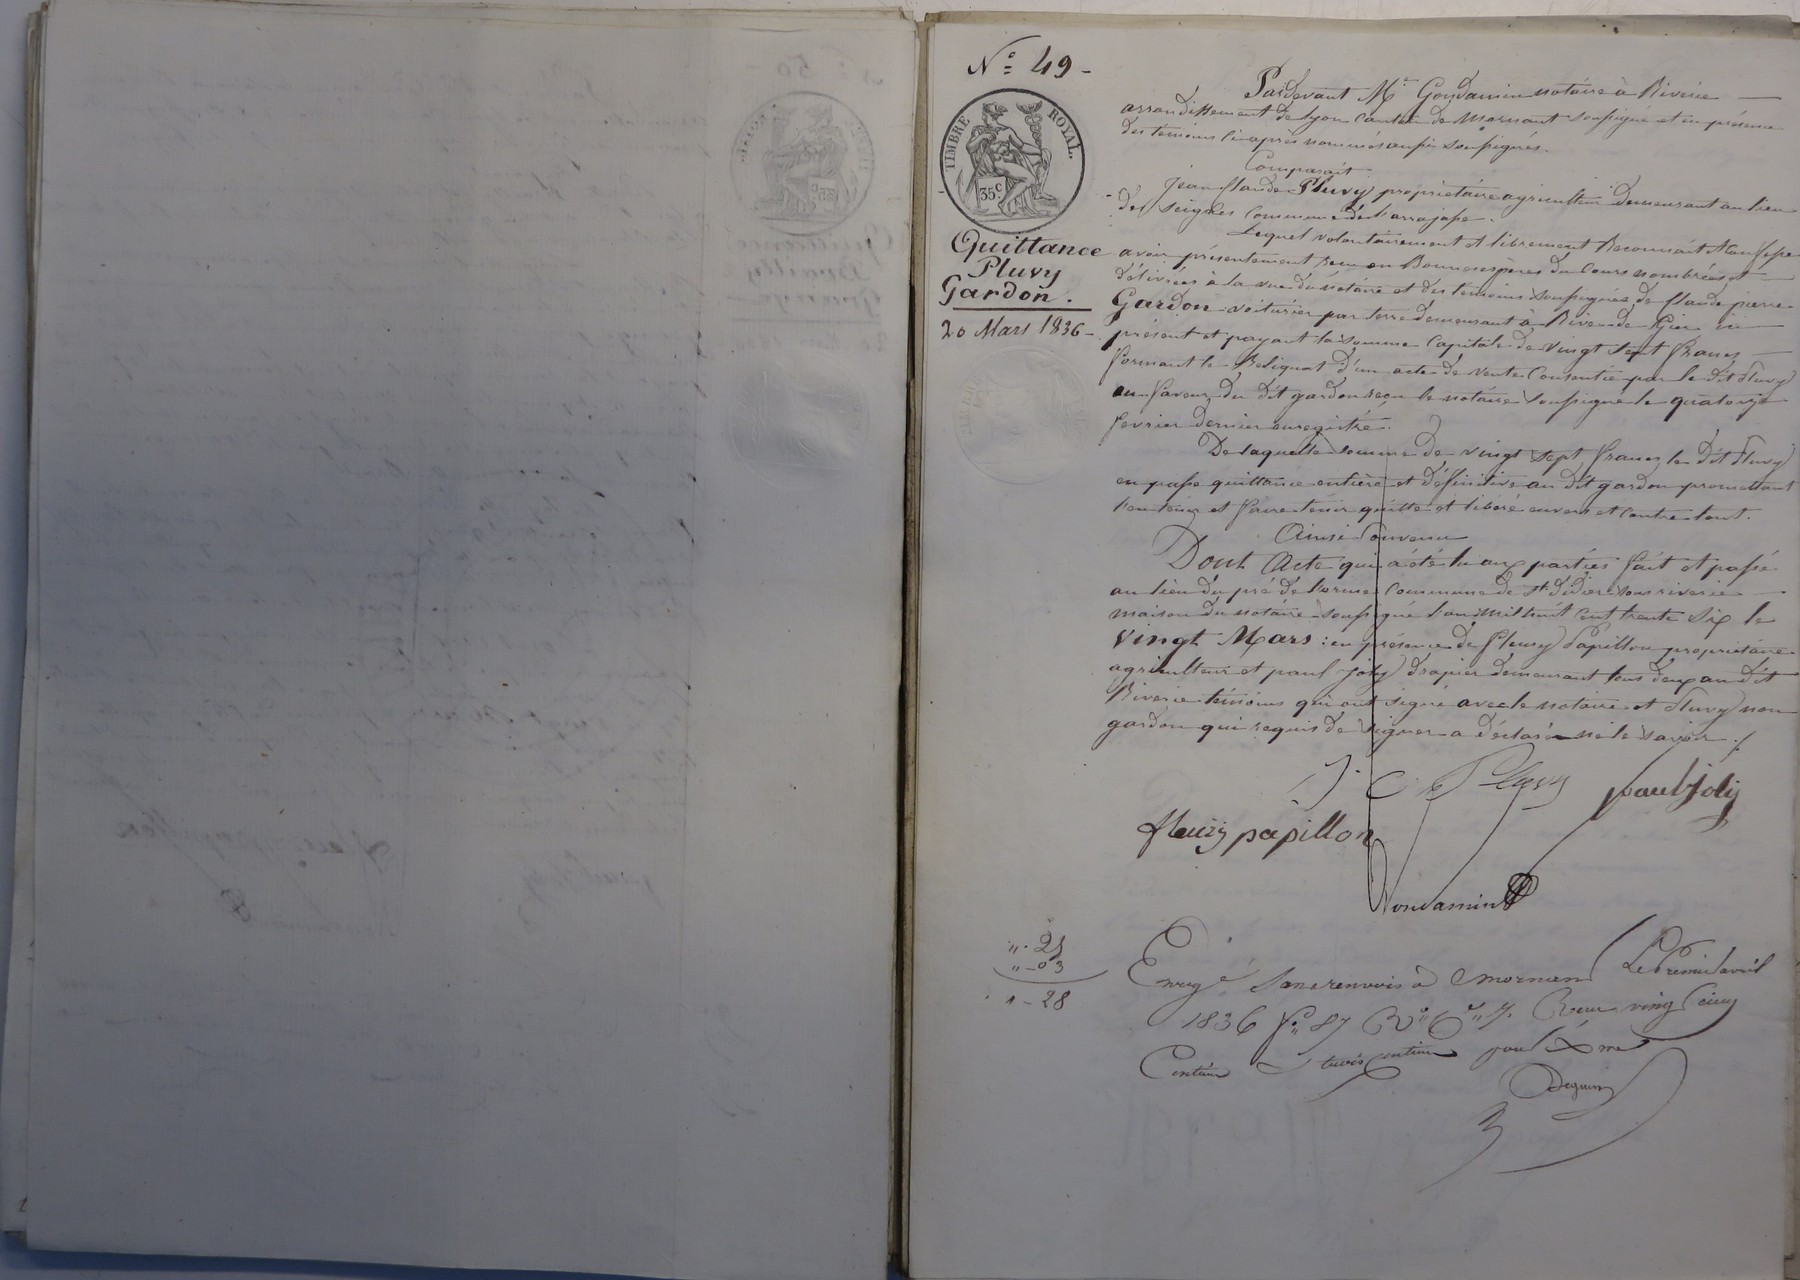 N° 49 -
TIMBRE ROYAL.
35.c
Quittance
Pluvy
Gardon.
20 Mars 1836 -
Pardevant Me Gondamin notaire à Riverie
arrondissement de Lyon canton de Mornant soussigné et en présence
des témoins ci-après nommés aussi soussignés.
Comparait
Jean Claude Pluvy propriétaire agriculteur demeurant au lieu
de commune d'Echarragasse.
Lequel volontairement et librement Reconnait et confesse
avoir présentement reçu en Bonnes espèces du Cours nombrées et
délivrées à la vue du notaire et des témoins soussignés de Claude pierre
Gardon voiturier par terre demeurant à Rive de Gier ici
présent et payant la somme capitale de vingt sept francs
formant le Reliquat d'un acte de vente consentie par le dit Pluvy
en faveur du dit gardon reçu le notaire soussigné le quatorze
fevrier dernier enregistré.
De laquelle somme de vingt sept francs le dit Pluvy
en passe quittance entière et définitive au dit gardon promettant
l'en tenir et faire tenir quitte et libéré envers et contre tout.
Ainsi Convenu
Dont Acte qui a été lu aux parties fait et passé
au lieu du pré de lorme commune de St didier sous riverie
maison du notaire soussigné l'an mil huit cent trente six le
vingt Mars : en présence de fleury Papillon propriétaire
agriculteur et paul Joly drapier demeurant tous deux au dit
Riverie témoins qui ont signé avec le notaire et Pluvy non
gardon qui requis de signer a déclaré ne le savoir ./.
J. C Pluvy paul joly
fleury papillon
Gondamin
" . 25
" - 03
" - 28
Enregé sans renvois à Mornant Le Premier avril
1836 fo 87 Ro Reçu vingt cinq
Centimes trois centimes pour Xme
Deguin